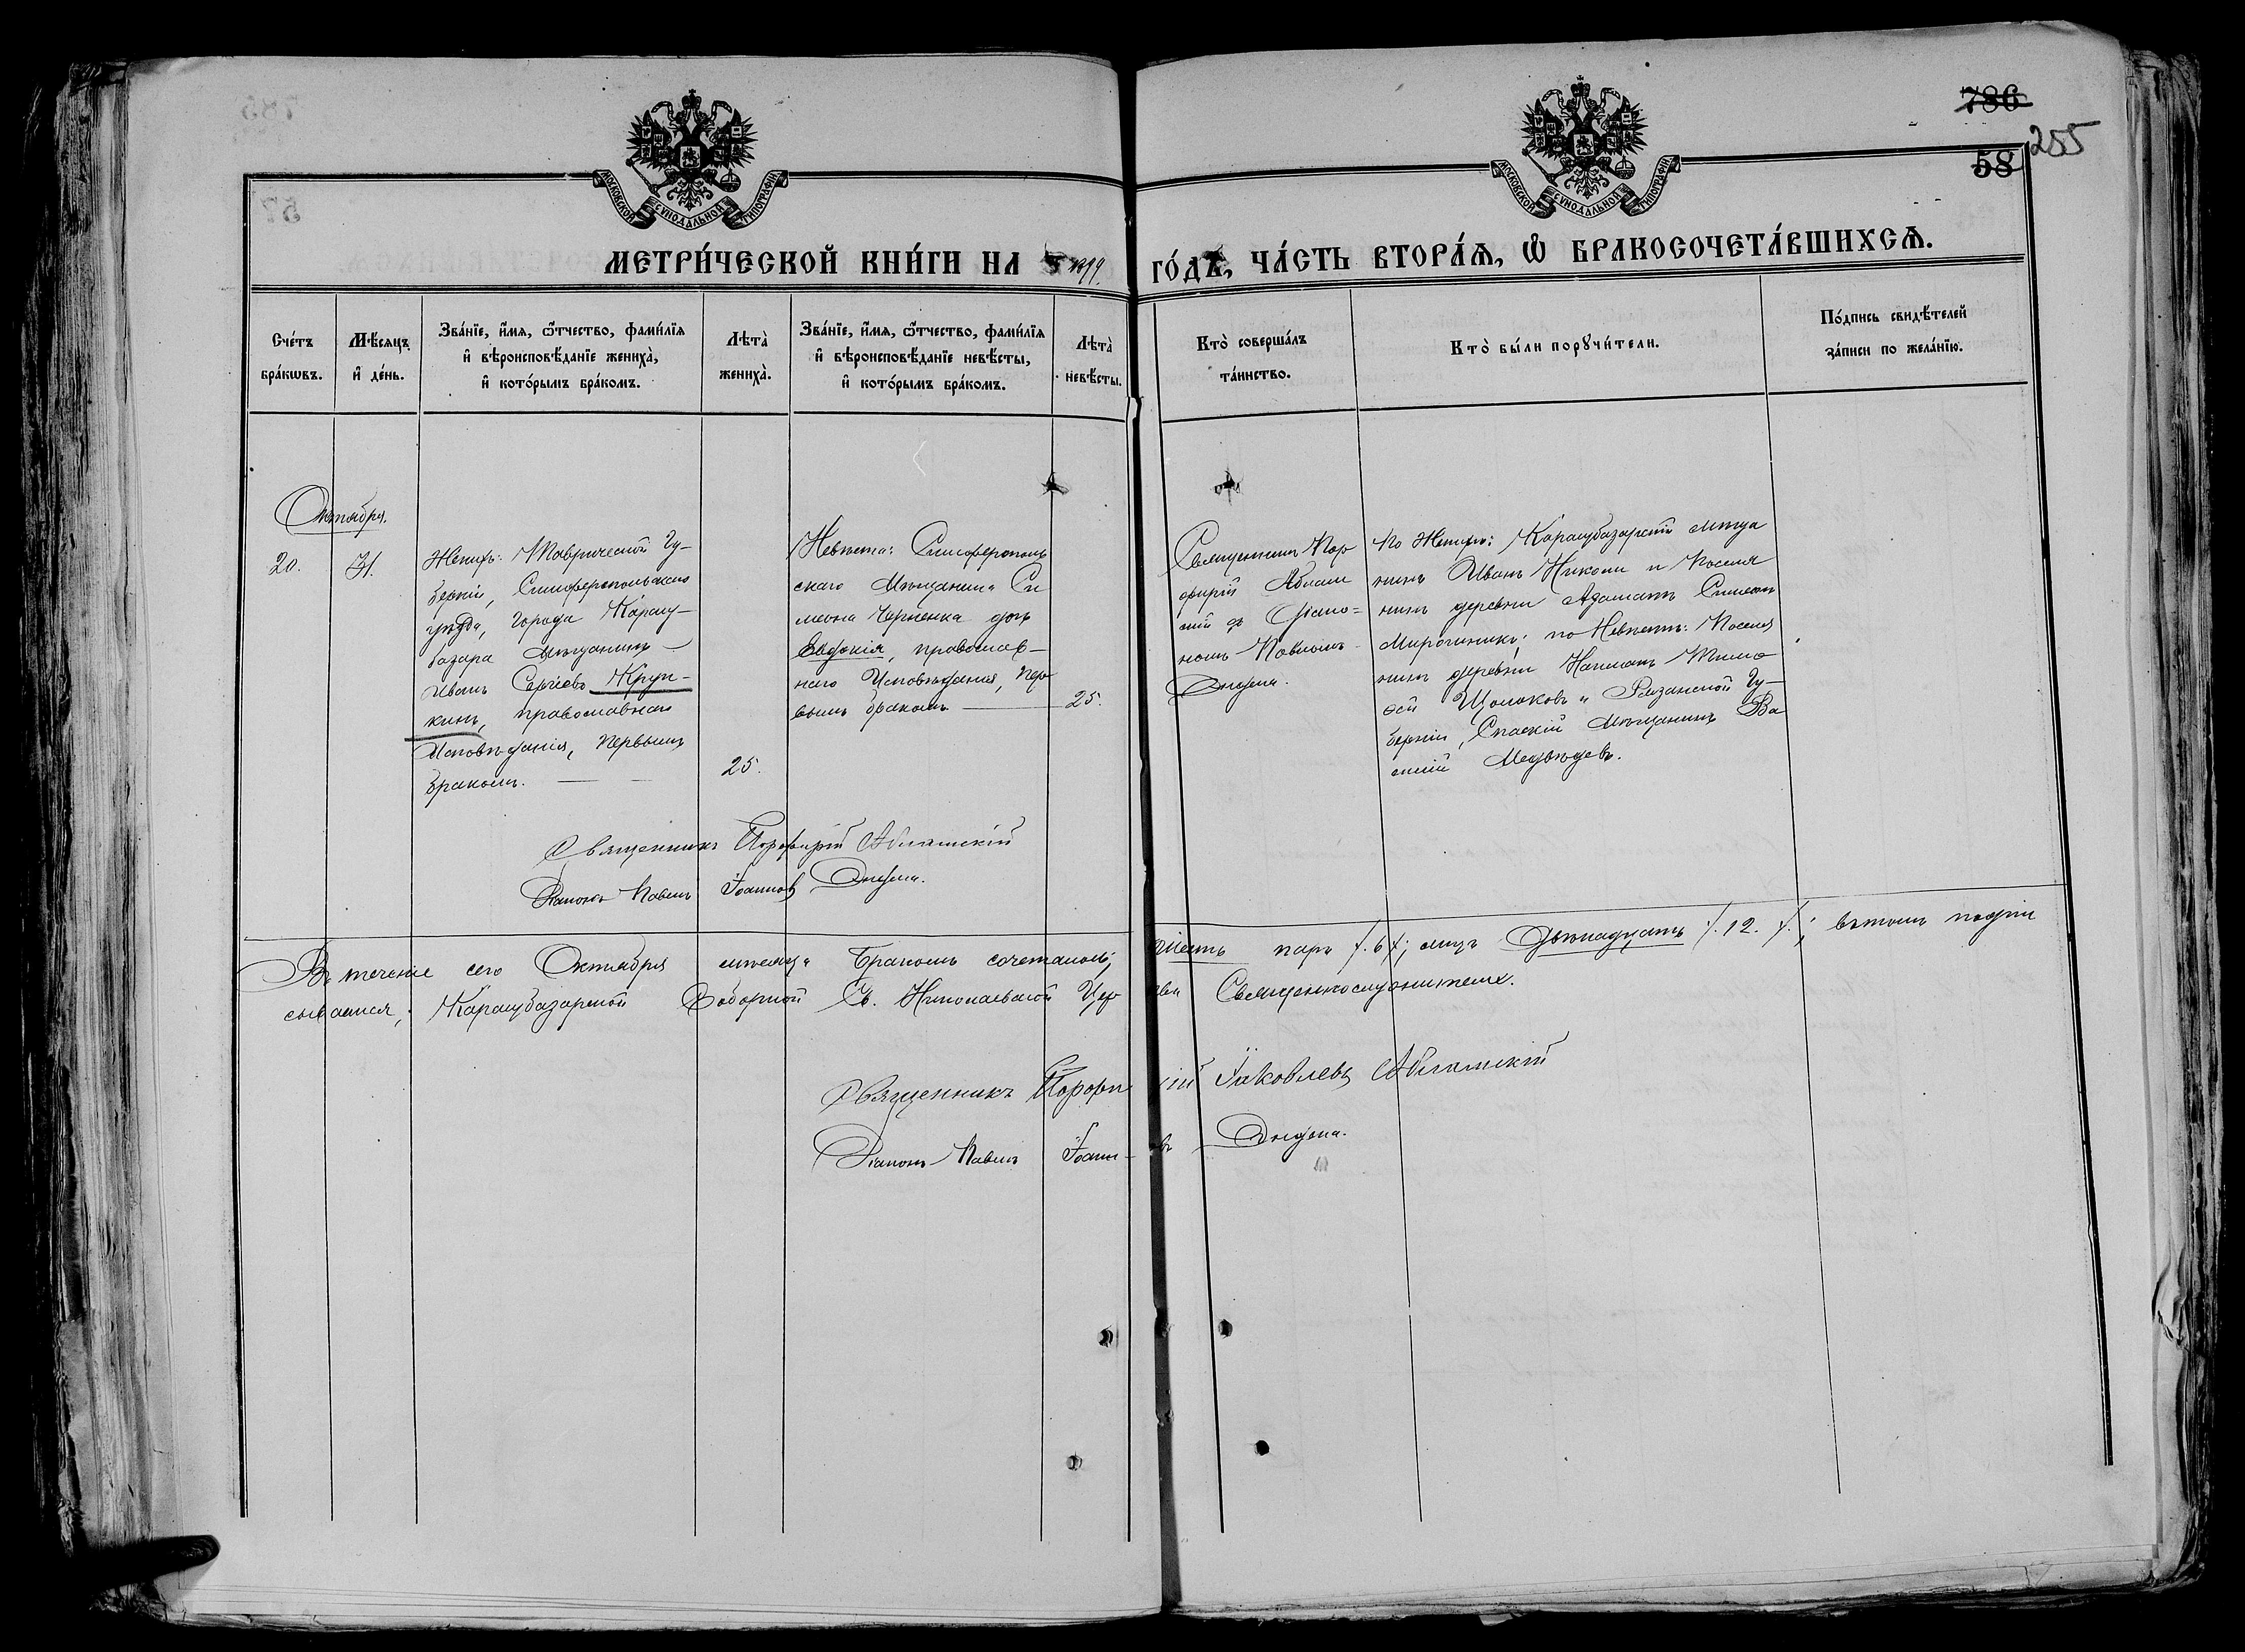 786
255
58
МОСКОВСКОЙ СѴНОДАЛЬНОЙ ТИПОГРАФІИ
МОСКОВСКОЙ СѴНОДАЛЬНОЙ ТИПОГРАФІИ
МЕТРИ́ЧЕСКОЙ КНИ́ГИ НА 1899. ГО́ДЪ, ЧА́СТЬ ВТОРА́Я, Ѽ БРАКОСОЧЕТА́ВШИХСЯ.
Сче́тъ
бра́кѡвъ.
Мѣ́сяцъ
и҆ де́нь.
Зва́нїе, и҆́мя, ѻ҆́тчество, фами́лїя
и҆ вѣроисповѣ́данїе жениха̀,
и҆ кото́рымъ бра́комъ.
Лѣта̀
жениха̀.
Зва́нїе, и҆́мя, ѻ҆́тчество, фами́лїя
и҆ вѣроисповѣ́данїе невѣ́сты,
и҆ кото́рымъ бра́комъ.
Лѣта̀
невѣ́сты.
Кто̀ соверша́лъ
та́инство.
Кто̀ бы́ли порꙋчи́тели.
По́дпись свидѣ́телей
за́писи по жела́нїю.
Октября.
20.
31.
Женихъ: Таврической Гу-
берніи, Симферопольскаго
уѣзда, города Карасу-
базара мѣщанинъ
Иванъ Сергіевъ Круп-
кинъ, православнаго
Исповѣданія, первымъ
бракомъ.
25.
Невѣста: Симферополь
скаго Мѣщанина Си
меона Черненка дочь
Евдокія, православ-
наго Исповѣданія, пер
вымъ бракомъ
25.
Священникъ Пор
фирій Аблаш
кій съ Діако-
номъ Павломъ
По Женихѣ: Карасубазарскій мѣща
нинъ Иванъ Николи и Поселя
нинъ деревни Азаматъ Симеонъ
Мирошникъ; по Невѣстѣ: Поселя
нинъ деревни Тимо
ѳей Щолоковъ и Рязанской Гу-
берніи, Спаскій Мѣщанинъ Ва
силій Медвѣдевъ.
Священникъ Порфирій Аблашскій
Діаконъ Павелъ Іоанновъ
Въ теченіе сего Октября мѣсяца Бракомъ сочеталось; Шесть паръ /.6./; лицъ Двѣнадцать /.12./; въ томъ подпи
сываемся; Карасубазарской Соборной Св. Николаевской Церкви Священнослужители.
Священникъ Порфирій Іаковлевъ Аблашскій
Діаконъ Павелъ Іоанновъ